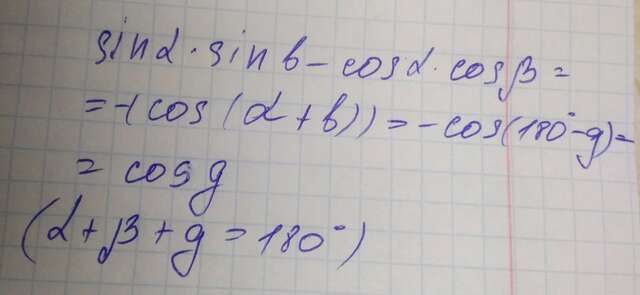 sinα·sin b - cosα·cosβ =
= -(cos(α+b)) = -cos(180°-g) =
= cos g
(α+β+g=180°)